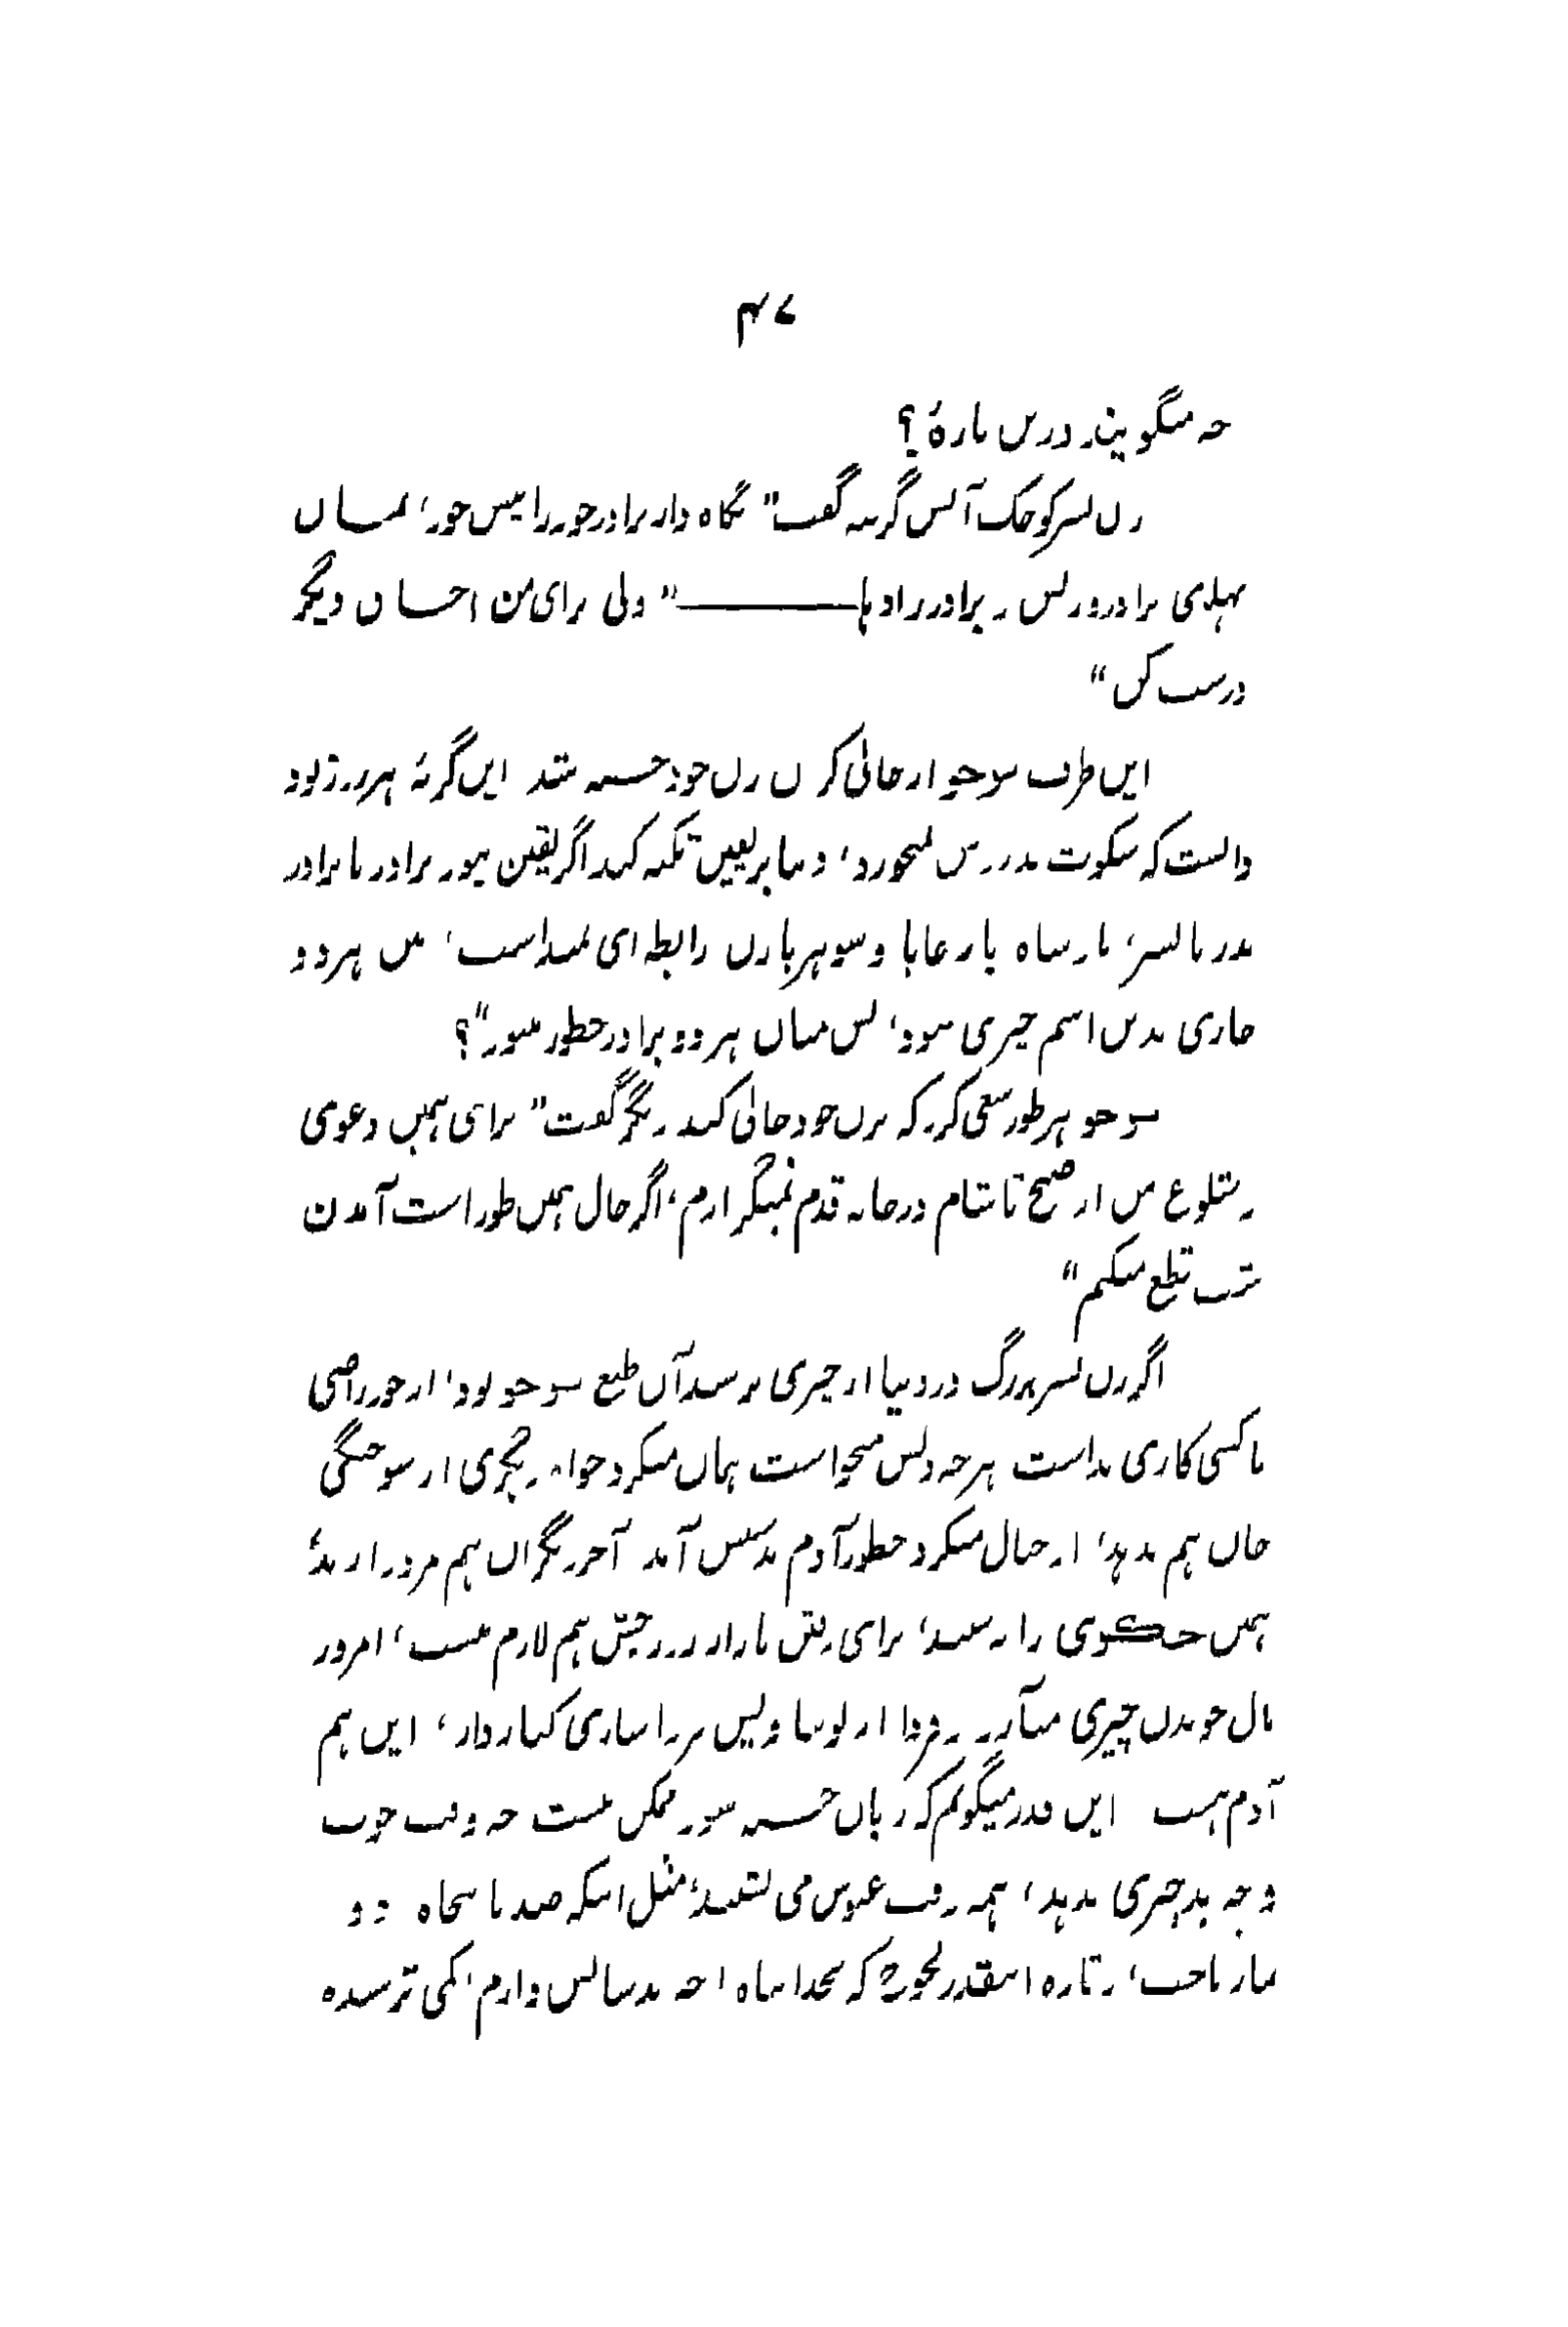 ۴۷
چه میگویند درین بارهٔ؟
زن پسر کوچک آتش گرفته گفت "نگاه دار برادر خود را پیش خود،
پهلوی برادرورنس برادرزادها——" ولی برای من احسان دیگر
درست کن"
این طرف سوجو از حالی کردن زن خود خسته شد این گربهٔ هر روز بود
دانست که سکوت بدردش نمیخورد، دنیا بر یقین تکیه کند اگر یقین نبود برادر با برادر
پدر با پسر، پادشاه با رعایا و شوهر با زن رابطه‌ای نمیداشت، من هر دو
جاری بدین اسم چیزی شود، پس میان هر دو برادر چطور میشود"؟
سوجو هر طور سعی کرد که بزن خود حالی کند دیگر گفت "برای همین دعوی
و شلوغ من از صبح تا شام در خانه قدم نمیگزارم، اگر حال همین طور است آمدن
شب قطع میکنم"
اگر زن پسر بزرگ در دنیا از چیزی میترسد آن طبع سوجو بود، از خود راضی
با کسی کاری نداشت هرچه دلش میخواست همان میکرد خواه دیگری از سوختگی
جان هم بدهد، از خیال میکرد چطور آدم بدستش آمد آخر دیگران هم مرد دارند
همین را
برای رفتن بازار درد رختش هم لازم نیست، امروز
مال خوبدن چیزی میآرد و فردا از این هم
آدم هست این قدر میگویم که زبان خسته شود ممکن نیست چه وقت خوب
و چه بد چیزی بدهد، همه وقت عبوس می نشیند، مثل اینکه صد یا پنجاه دو
بار باخت، و تازه اینقدر لجوج که بخدا پناه! چه بدشانس دارم، کمی ترسیده